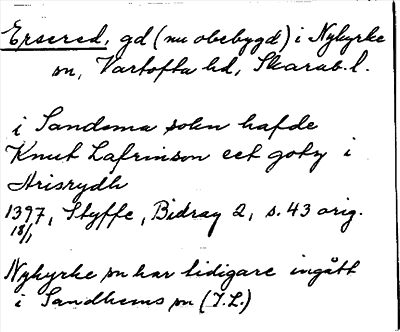 Ersered, gd (nu obebygd) i Nykyrke
sn, Vartofta hd, Skarab. l.
i Sandema sokn hafde
Knut Lafrinson eet goty i
Arisrydh
1397, Styffe, Bidrag 2, s. 43 orig.
18/1
Nykyrke sn har tidigare ingått
i Sandhems sn (I.L.)